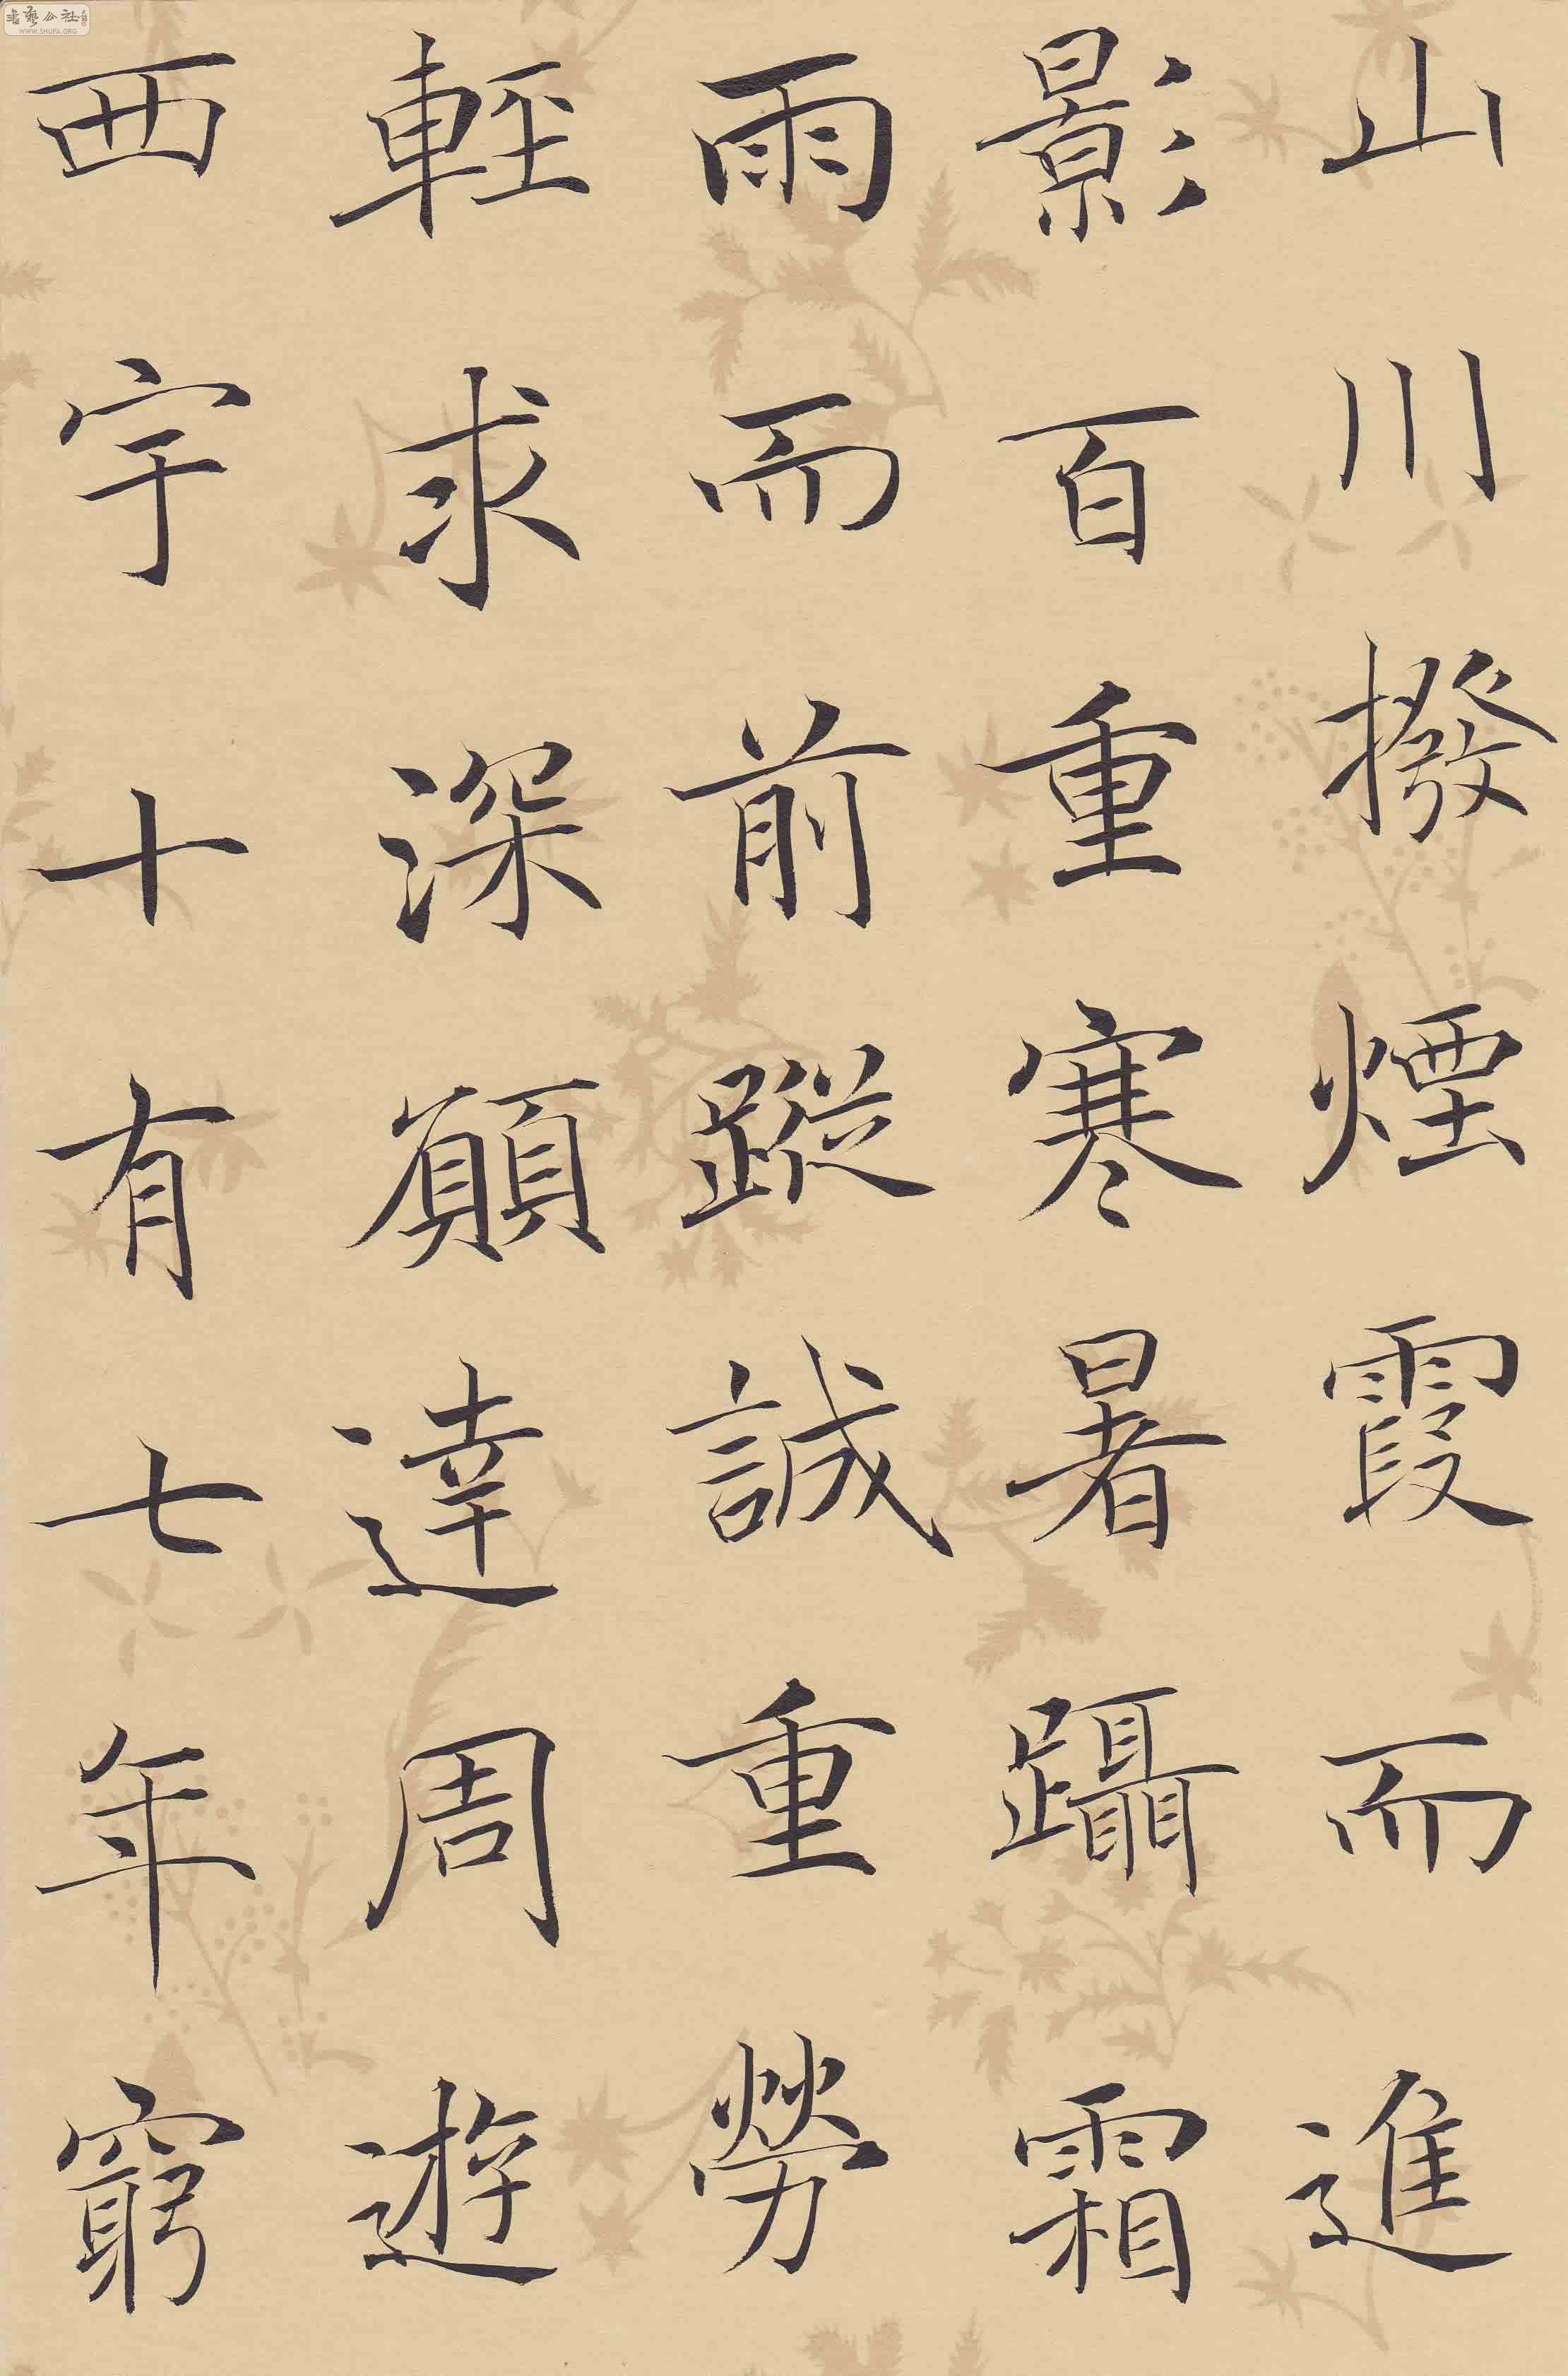 山川撥煙霞而進
影百重寒暑躡霜
雨而前蹤誠重勞
輕求深願達周遊
西宇十有七年窮
WWW.SHUFA.ORG